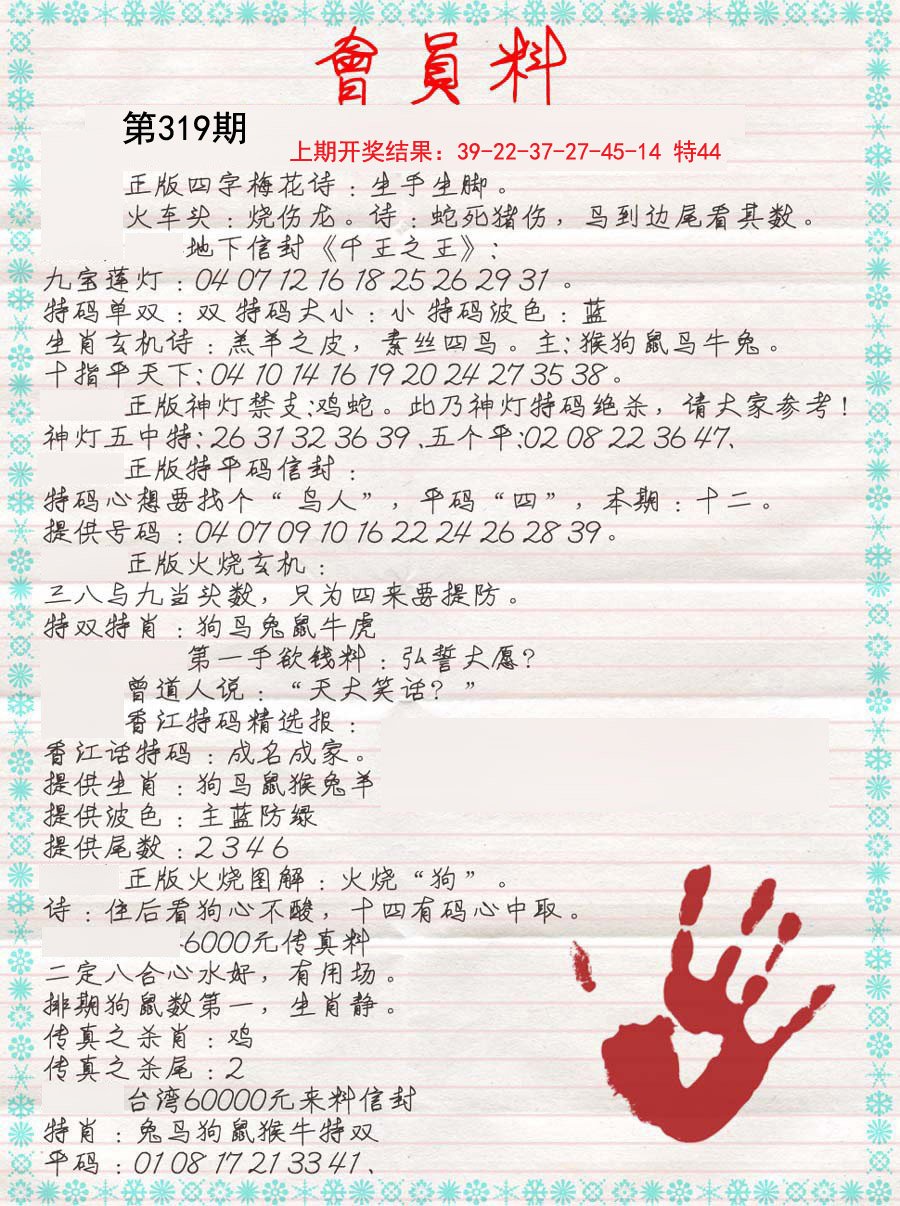 會員料
第319期
上期开奖结果：39-22-37-27-45-14 特44
正版四字梅花诗：生手生脚。
火车头：烧伤龙。诗：蛇死猪伤，鸟到边尾看其数。
地下信封《千王之王》：
九宝莲灯：04 07 12 16 18 25 26 29 31 。
特码单双：双 特码大小：小 特码波色：蓝
生肖玄机诗：羔羊之皮，素丝四鸟。主：猴狗鼠鸟牛兔。
十指平天下：04 10 14 16 19 20 24 27 35 38。
正版神灯禁支:鸡蛇。此乃神灯特码绝杀，请大家参考！
神灯五中特：26 31 32 36 39 、五个平:02 08 22 36 47、
正版特平码信封：
特码心想要找个“鸟人”，平码“四”，本期：十二。
提供号码：04 07 09 10 16 22 24 26 28 39。
正版火烧玄机：
三八与九当头数，只为四来要提防。
特双特肖：狗鸟兔鼠牛虎
第一手欲钱料：弘誓大愿？
曾道人说：“天大笑话？”
香江特码精选报：
香江话特码：成名成家。
提供生肖：狗鸟鼠猴兔羊
提供波色：主蓝防绿
提供尾数：2 3 4 6
正版火烧图解：火烧“狗”。
诗：住后看狗心不酸，十四有码心中取。
6000元传真料
二定八合心水好，有用场。
排期狗鼠数第一，生肖静。
传真之杀肖：鸡
传真之杀尾：2
台湾60000元来料信封
特肖：兔鸟狗鼠猴牛特双
平码：01 08 17 21 33 41、